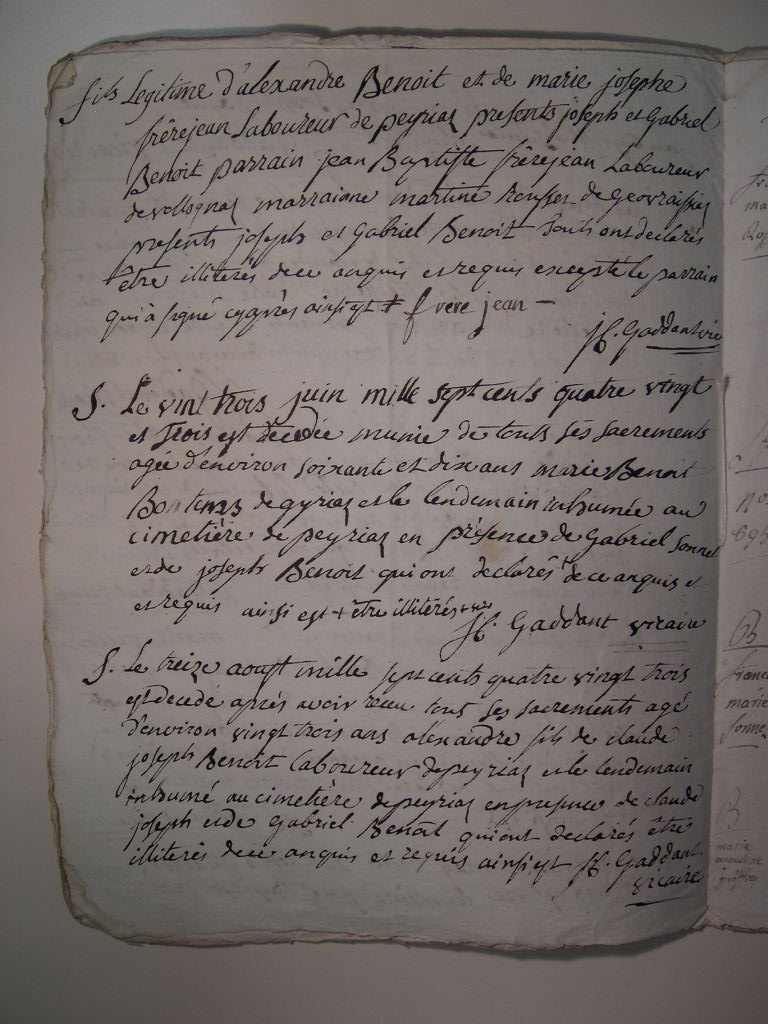 fils Legitime d'alexandre Benoit et de marie josephe
frèrejean Laboureur de peyriaz presents joseph et Gabriel
Benoit parrain jean Baptiste frèrejean Laboureur
devolognaz marraiane martine de Geovraissiaz
presents joseph et Gabriel Benoit touts ont declarés
être illitérés dece anquis et requis excepté le parrain
qui à signé cyaprès ainsi est + frere jean -
jh. Gaddant vic
S. Le vint trois juin mille sept cents quatre vingt
et trois est decedée munie de touts ses sacrements
agée d'environ soixante et dix ans marie Benoit
Bontems de gyriaz et le lendemain inhumée au
cimetière de peyriaz en présence de Gabriel Sonnet
et de joseph Benoit qui ont declarés ++ de ce anquis et
et requis ainsi est + être illitérés
jh. Gaddant vicaire
S. Le treize aoust mille sept cents quatre vingt trois
est decedé après avoir receu tous ses sacrements agé
d'environ vingt trois ans alexandre fils de claude
joseph Benoit laboureur depeyriaz et le lendemain
inhumé au cimetière depeyriaz en presence de claude
joseph et de Gabriel Benoit qui ont declarés être
illiterés dece anquis et requis ainsi est jh. Gaddant
vicaire
B
franc
marie
Sonnet
B
marie